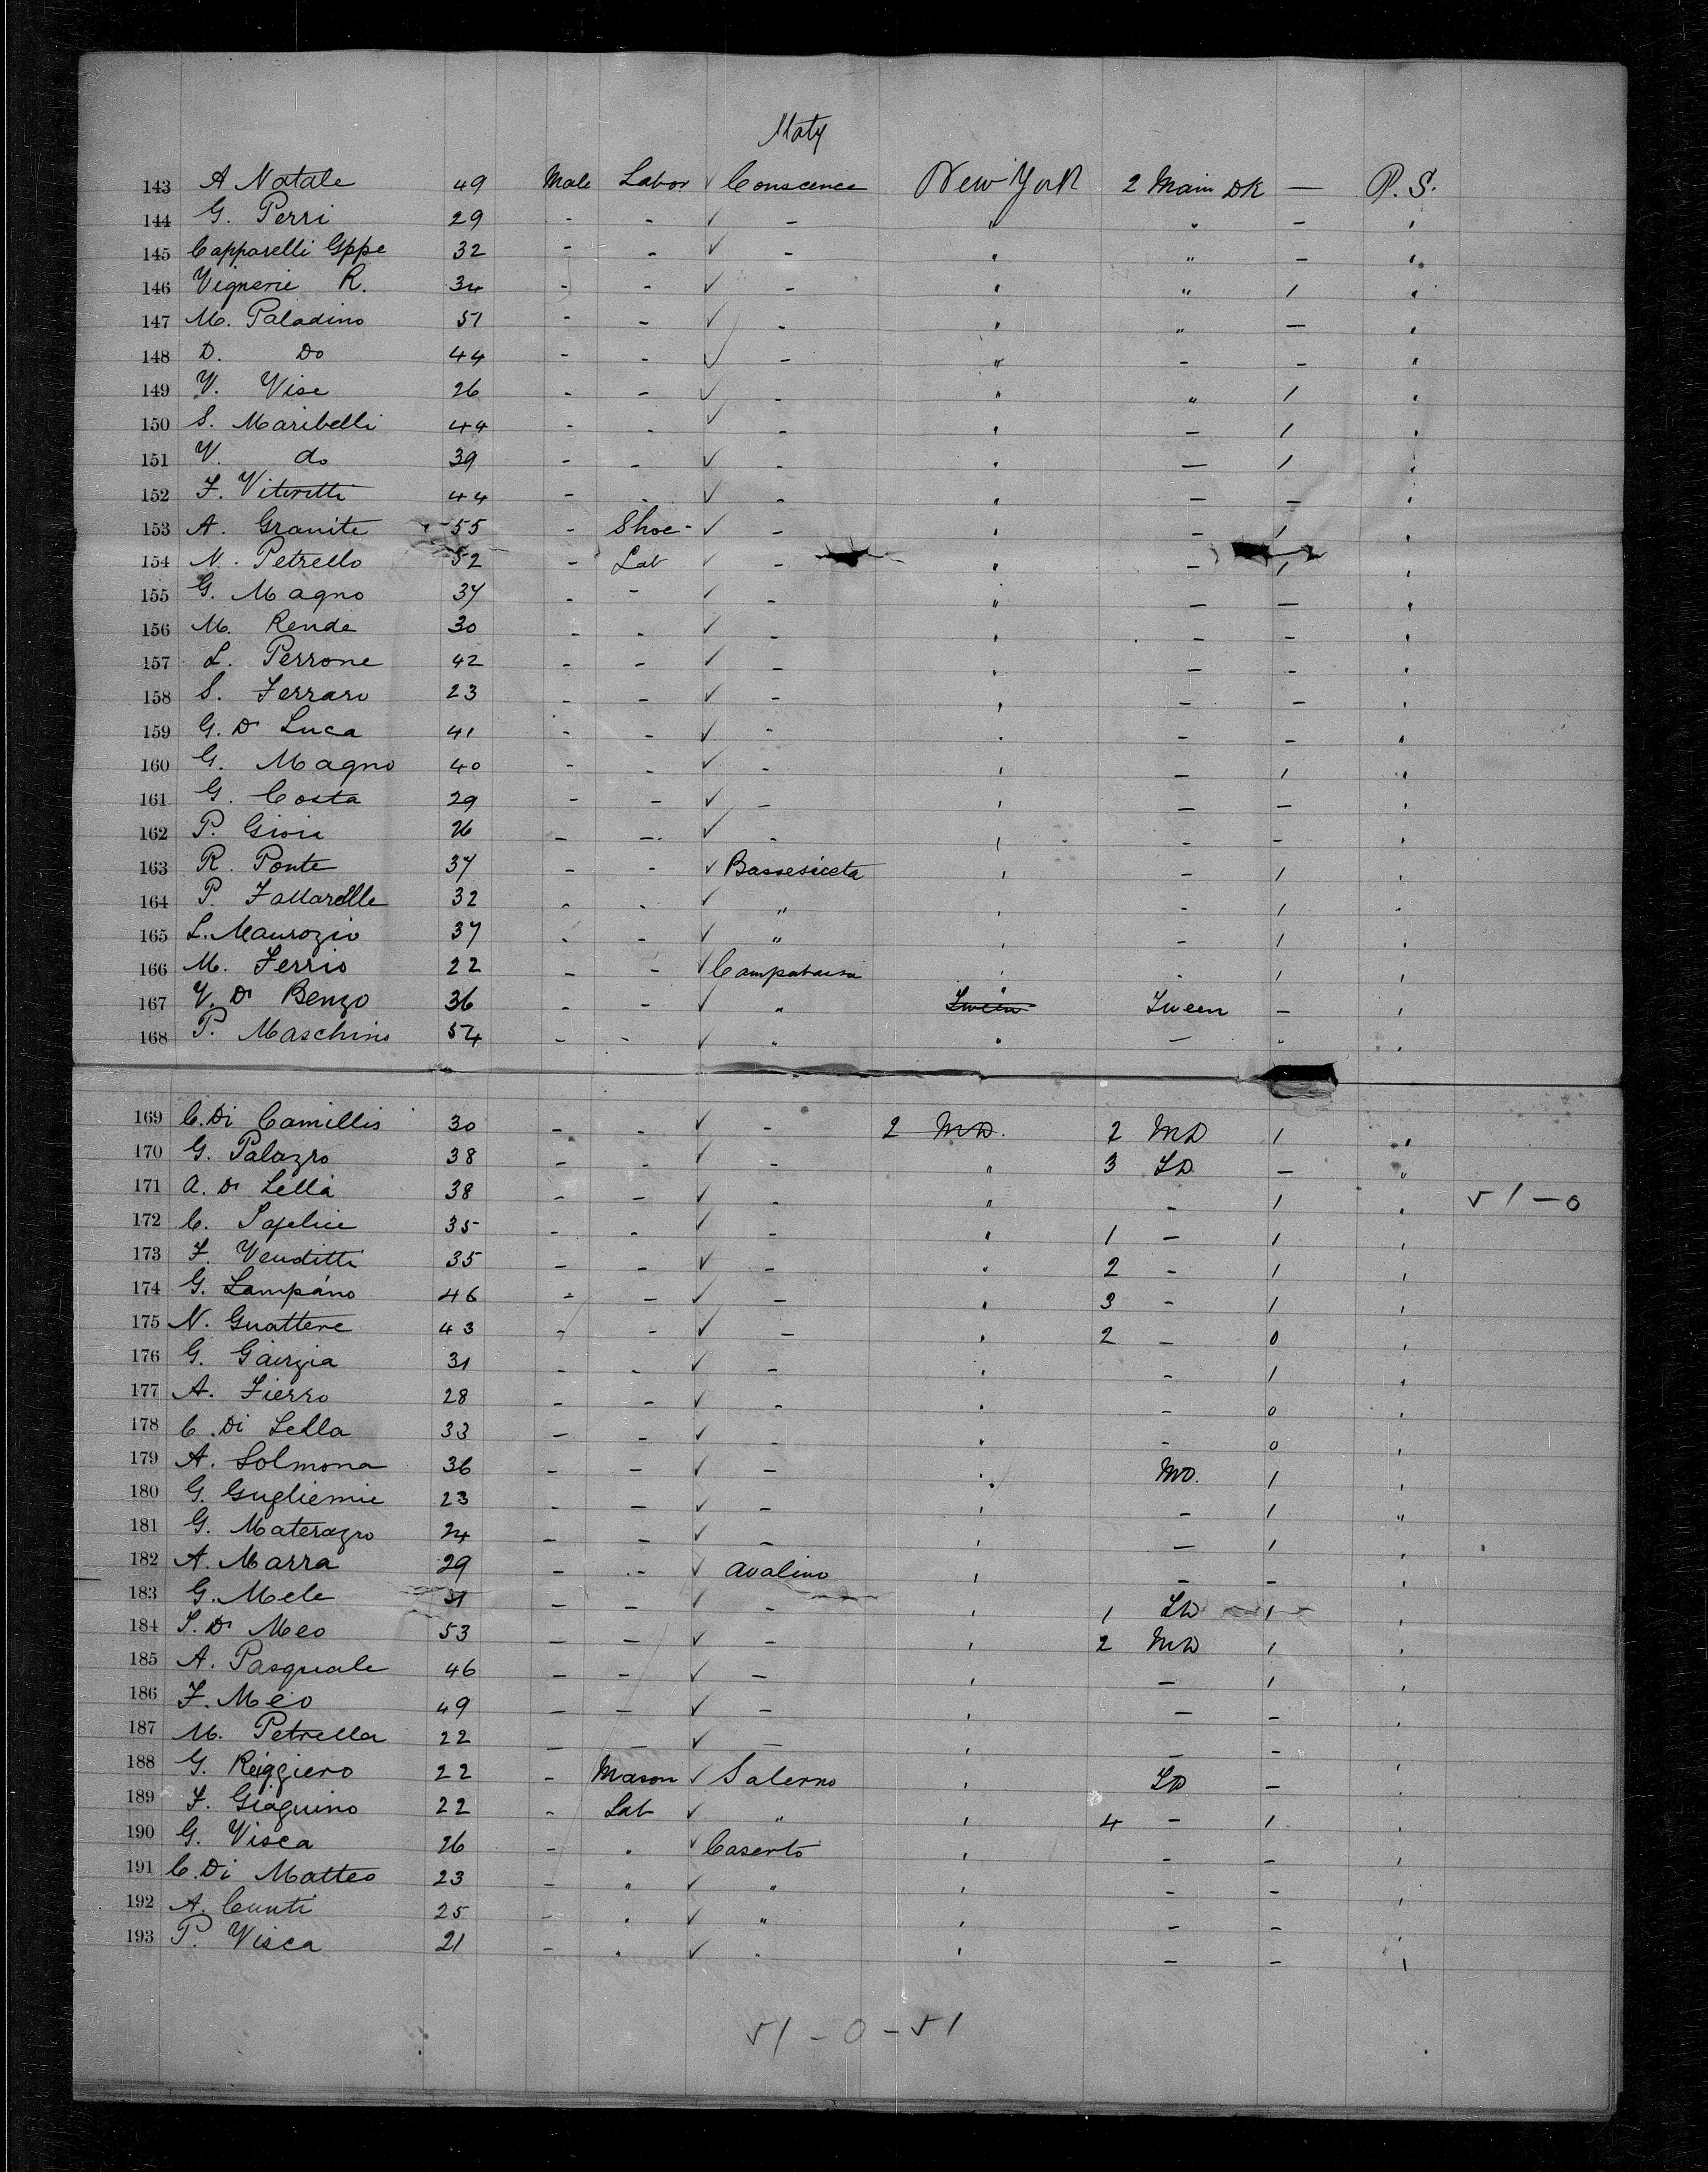 Italy
143 A Natale 49 Male Labor ✓ Conscence New York 2 Main DK — P. S.
144 G. Perri 29 - - ✓ - " " — "
145 Capparelli Gppe 32 - - ✓ - " " — "
146 Vignerie R. 34 - - ✓ - " " 1 "
147 M. Paladino 51 - - ✓ - " " — "
148 D. Do 44 - - ✓ - " - — "
149 V. Vise 26 - - ✓ - " " 1 "
150 S. Maribelli 44 - - ✓ - " — 1 "
151 V. do 39 - - ✓ - " — 1 "
152 F. Vitiritti 44 - - ✓ - " — — "
153 A. Granite 55 - Shoe - ✓ - " - 1 "
154 N. Petrello 52 - Lab ✓ - " - 1 "
155 G. Magno 37 - - ✓ - " — — "
156 M. Rende 30 - - ✓ - " - - "
157 L. Perrone 42 - - ✓ - " — - "
158 S. Ferraro 23 - - ✓ - " - - "
159 G. Di Luca 41 - - ✓ - " - - "
160 G. Magno 40 - - ✓ - " — 1 "
161 G. Costa 29 - - ✓ - " — — "
162 P. Gioia 26 - - ✓ - " - - "
163 R. Ponte 37 - - ✓ Bassesiceta " - 1 "
164 P. 32 - - ✓ " " - 1 "
165 L. Maurozio 37 - - ✓ " " - 1 "
166 M. Ferrio 22 - - ✓ " - 1 "
167 V. Di Benzo 36 - - ✓ " Sween Sween - "
168 P. Maschino 54 - - ✓ " " — " "
169 C. Di Camillis 30 - - ✓ - 2 MD. 2 MD 1 "
170 G. Palazzo 38 - - ✓ - " 3 LD - "
171 A. Di Lella 38 - - ✓ - " - 1 " 51 - 0
172 C. 35 - - ✓ - " 1 - 1 "
173 F. Venditti 35 - - ✓ - " 2 - 1 "
174 G. Lampano 46 - - ✓ - " 3 - 1 "
175 N. Guattere 43 - - ✓ - " 2 - 0 "
176 G. 31 - - ✓ - " - 1 "
177 A. Fierro 28 - - ✓ - " - 0 "
178 C. Di Lella 33 - - ✓ - " - 0 "
179 A. Solmona 36 - - ✓ - " MD. 1 "
180 G. Gugliemie 23 - - ✓ - " - 1 "
181 G. Materazzo 24 - - ✓ - " — 1 "
182 A. Marra 29 - - ✓ Avalino " - - "
183 G. Mele 31 - - ✓ - " 1 LD 1 "
184 S. Di Meo 53 - - ✓ - " 2 MD 1 "
185 A. Pasquale 46 - - ✓ - " — 1 "
186 F. Meo 49 - - ✓ - " — - "
187 M. Petrella 22 - - ✓ - " — - "
188 G. Reiggiero 22 - Mason ✓ Salerno " LD - "
189 F. Giaquino 22 - Lab ✓ " " 4 - 1 "
190 G. Visca 26 - " ✓ Caserto " - - "
191 C. Di Matteo 23 - " ✓ " " - - "
192 A. Cunti 25 - " ✓ " " - - "
193 P. Visca 21 - " ✓ " " - - "
51 - 0 - 51